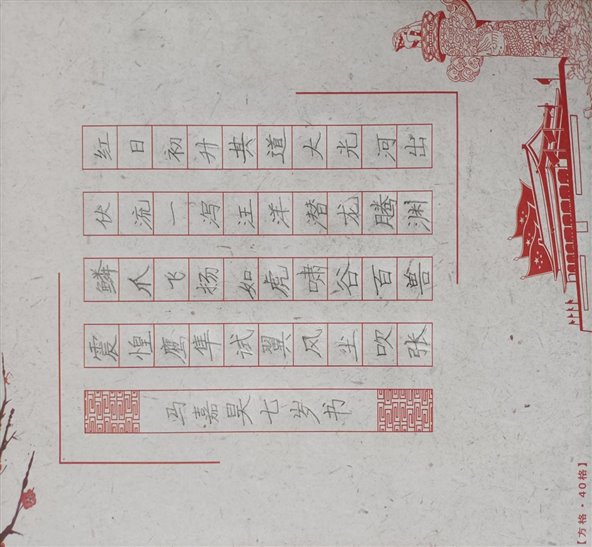 红日初升其道大光河出
伏流一泻汪洋潜龙腾渊
鳞爪飞扬如虎啸谷百兽
震惶鹰隼试翼风尘吹张
马嘉昊七岁书
【方格·40格】